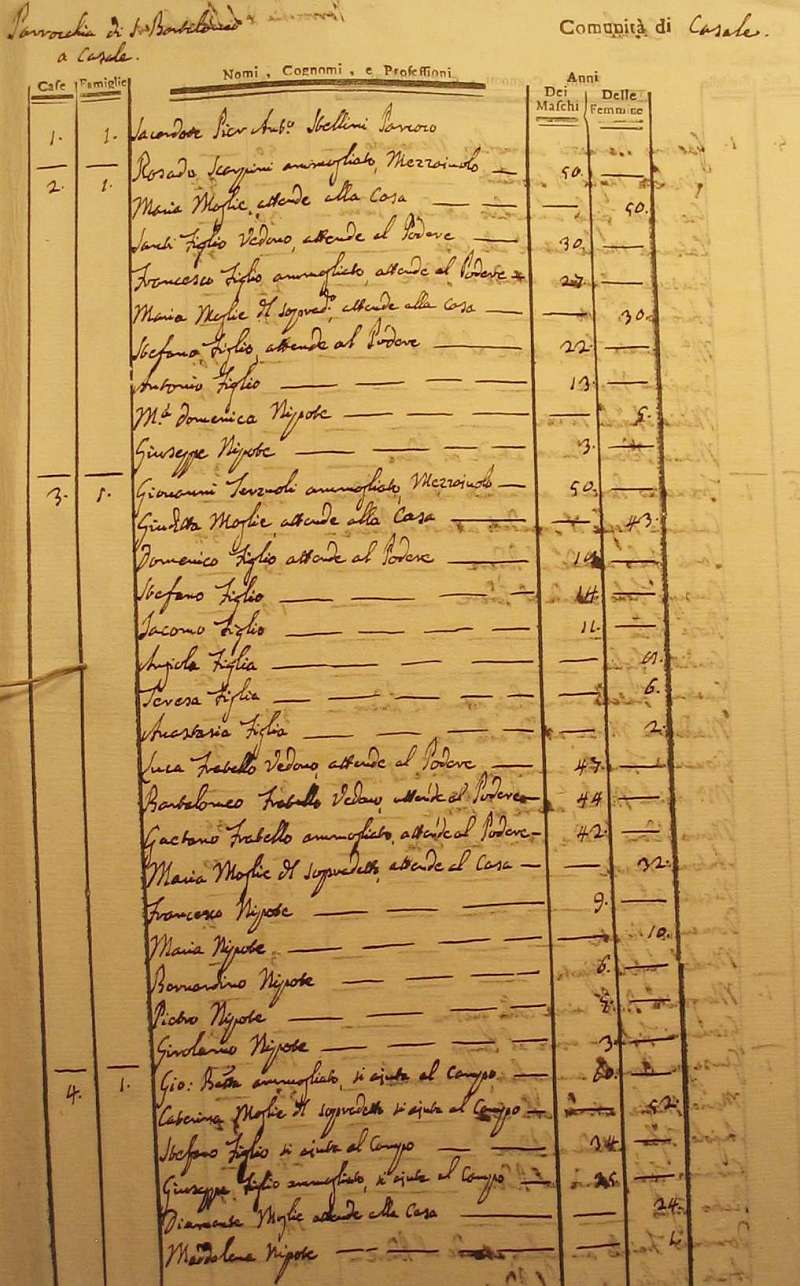 Parrocchia di S. Bartolomeo
a Casale.
Comunità di Casale.
Case Famiglie Nomi, Cognomi, e Professioni Anni
Dei Maschi Delle Femmine
1. 1. Sacerdote Pier Ant.º Stellini Parroco
2. 1. Rosado Scarpini ammogliato, Mezzaiuolo 50.
Maria Moglie, attende alla Casa 50.
Santi Figlio Vedovo, attende al Podere 30.
Francesco Figlio ammogliato, attende al Podere 27.
Maria Moglie del sopred.º attende alla Casa 30.
Stefano Figlio, attende al Podere 22.
Antonio Figlio 13.
M.ª Domenica Nipote 5.
Giuseppe Nipote 3.
3. 1. Giovanni ammogliato, Mezzaiuolo 50.
Giuditta Moglie, attende alla Casa 43.
Domenico Figlio attende al Podere
Stefano Figlio 14.
Jacomo Figlio 11.
Angiola Figlia
Teresa Figlia 6.
Anastasia Figlia 2.
Luca Fratello Vedovo, attende al Podere 47.
Bartolomeo Fratello Vedovo, attende al Podere 44.
Gaetano Fratello ammogliato, attende al Podere 42.
Maria Moglie del sopradetto, attende al Casa 32.
Francesco Nipote 9.
Maria Nipote 10.
Bernardino Nipote 6.
Pietro Nipote
Girolamo Nipote 3.
4. 1. Gio: Batta ammogliato, si ajuta al Campo 60.
Caterina Moglie del sopradetto si ajuta al Campo 52.
Stefano Figlio si ajuta al Campo 34.
Giuseppe Figlio ammogliato, si ajuta al Campo
Diamante Moglie attende alla Casa 24.
Maddalena Nipote